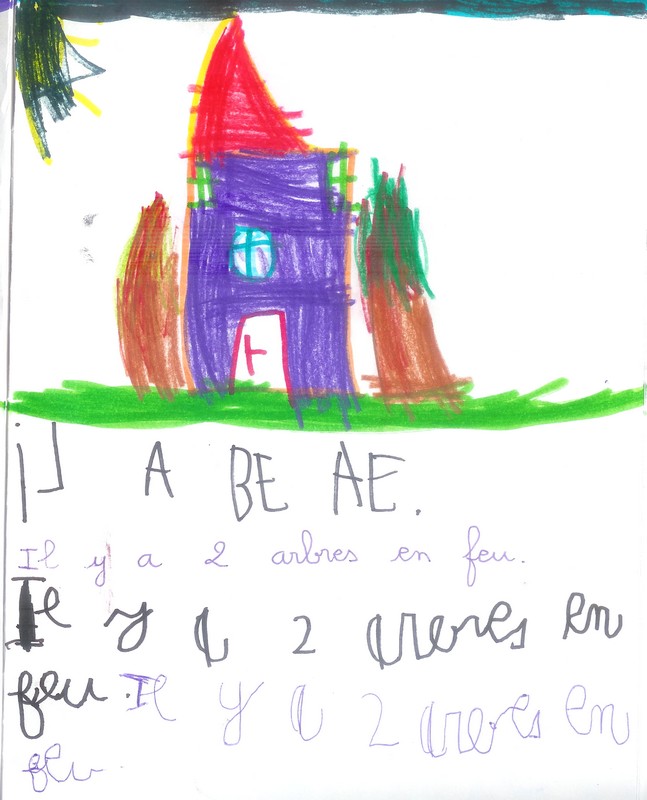 iL A BE AE.
Il y a 2 arbres en feu.
Il y a 2 areres en
feu. Il y a 2 areres en
feu.